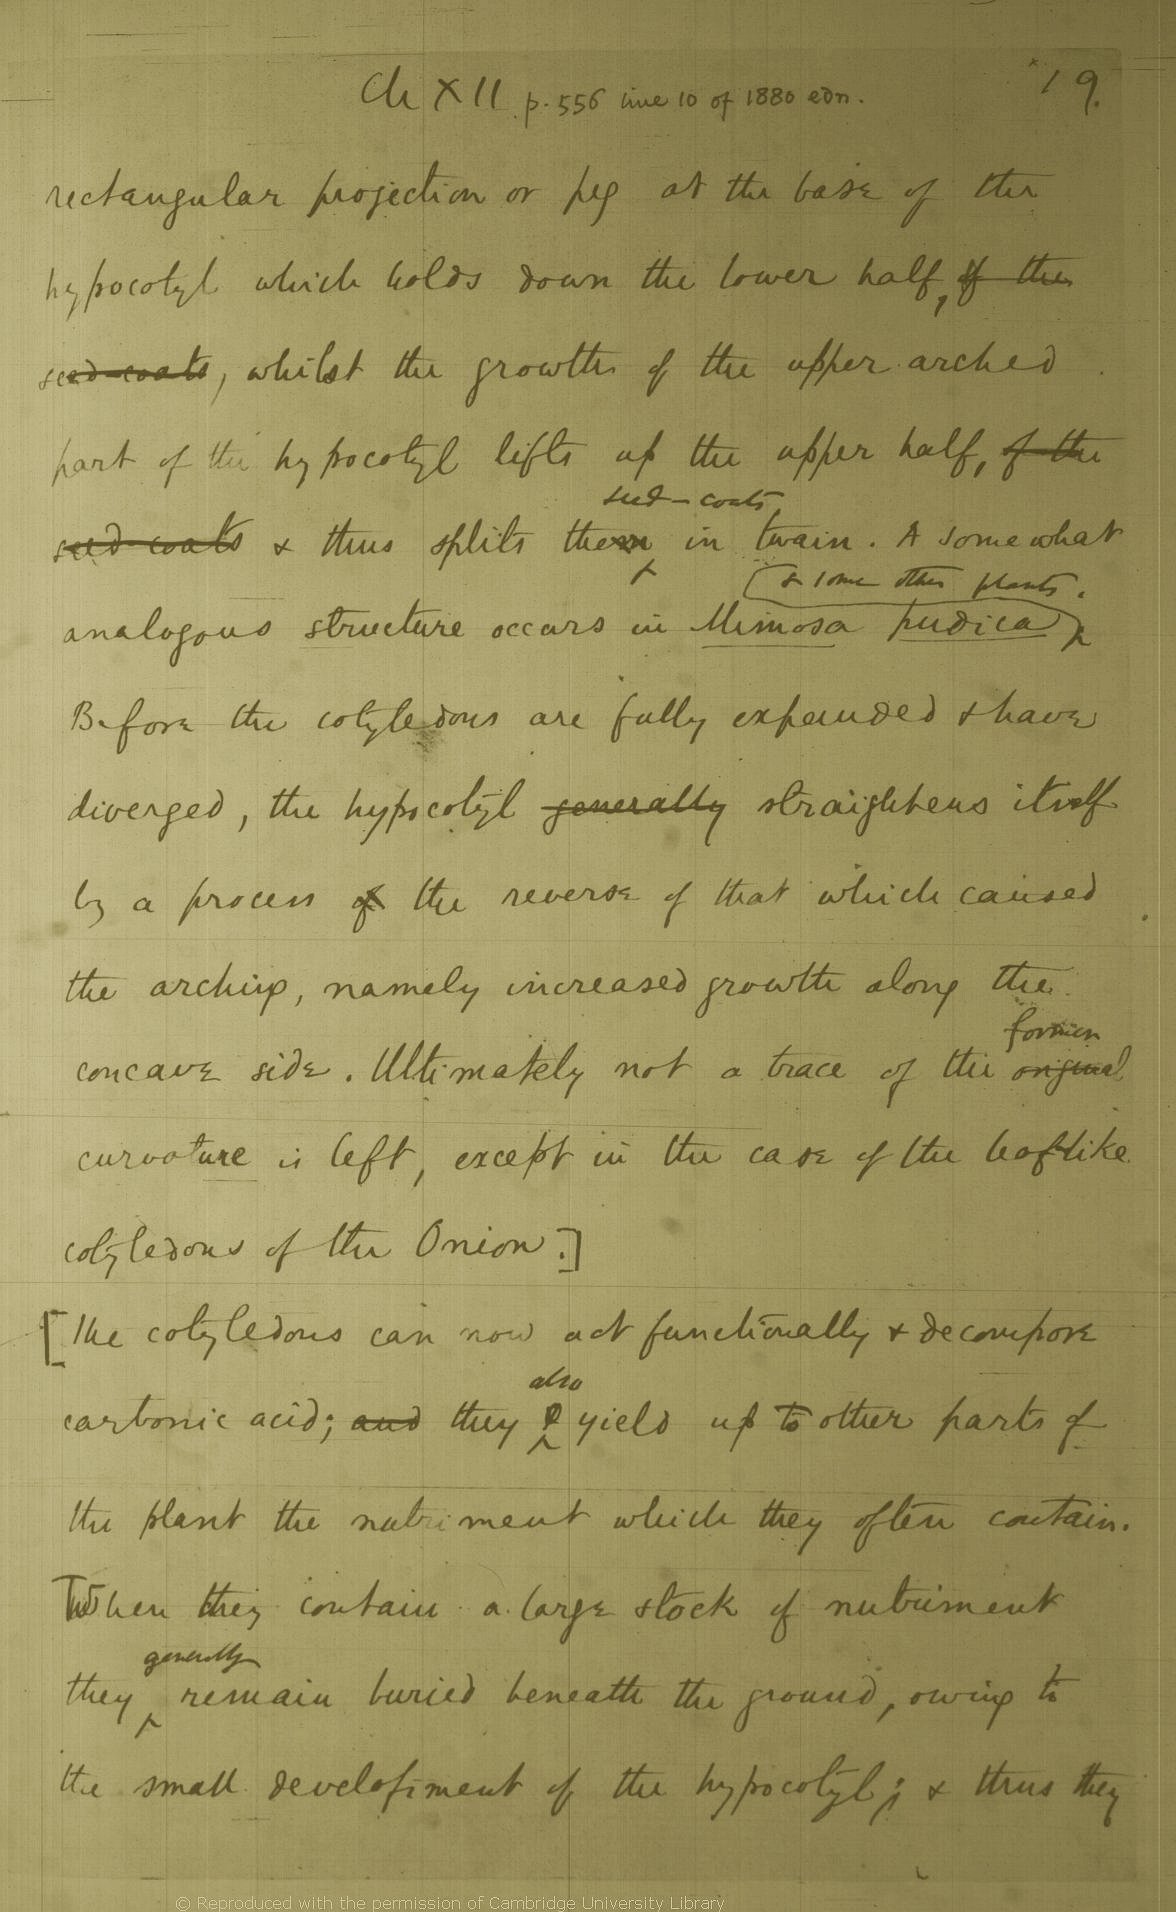 Ch XII p. 556 line 10 of 1880 edn.
19.
rectangular projection or peg at the base of the
hypocotyl which holds down the lower half, of the
seed-coats, whilst the growth of the upper arched
part of the hypocotyl lifts up the upper half, of the
seed-coats
seed-coats & thus splits them in twain. A somewhat
(& some other plants.
analogous structure occurs in Mimosa pudica)
Before the cotyledons are fully expanded & have
diverged, the hypocotyl generally straightens itself
by a process of the reverse of that which caused
the arching, namely increased growth along the
former
concave side. Ultimately not a trace of the original
curvature is left, except in the case of the leaf-like
cotyledons of the Onion.]
[The cotyledons can now act functionally & decompose
also
carbonic acid; and they yield up to other parts of
the plant the nutriment which they often contain.
When they contain a large stock of nutriment
generally
they remain buried beneath the ground, owing to
the small development of the hypocotyl; & thus they
© Reproduced with the permission of Cambridge University Library